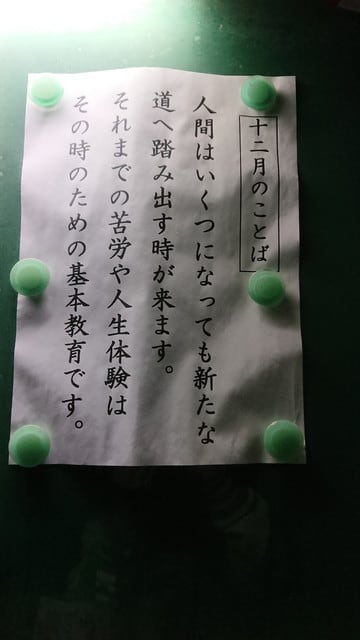 十二月のことば
人間はいくつになっても新たな
道へ踏み出す時が来ます。
それまでの苦労や人生体験は
その時のための基本教育です。